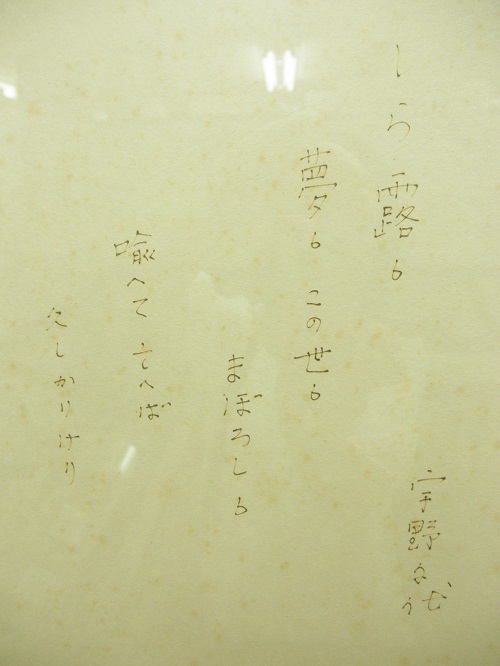 宇野千代
しら露も
夢も この世も
まぼろしも
喩へて 云へば
久しかりけり